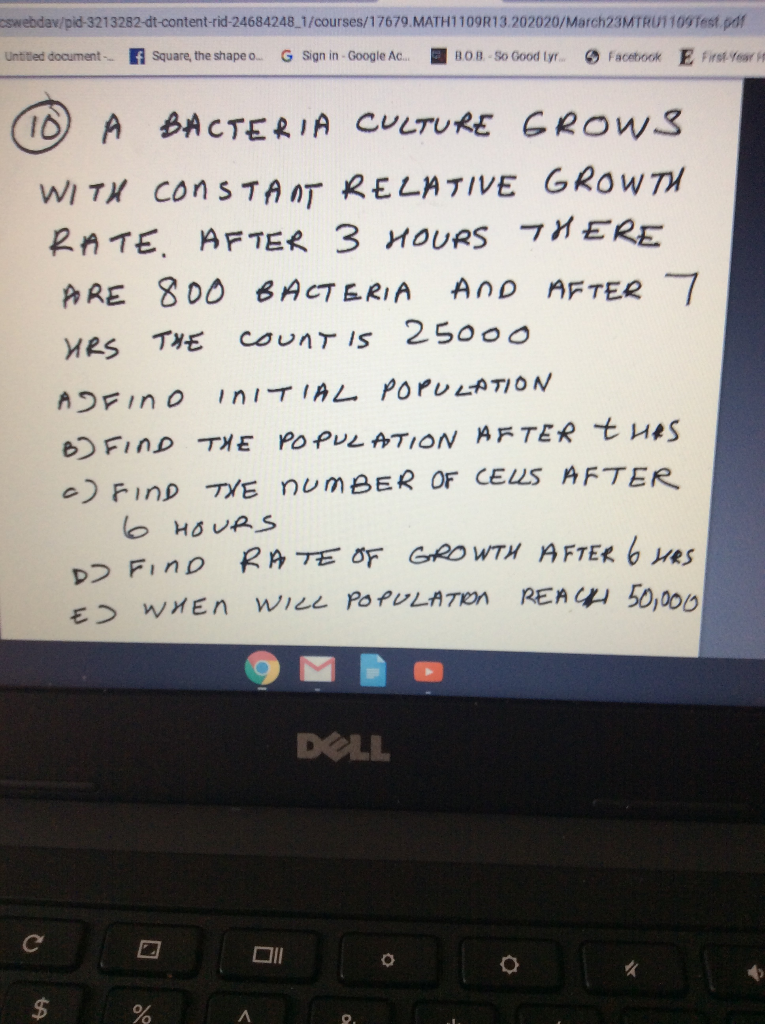 cswebdav/pid-3213282-dt-content-rid-24684248_1/courses/17679.MATH1109R13.202020/March23MTRU1109Test.pdf
Untitled document -... Square, the shape o... G Sign in - Google Ac... B.O.B. - So Good Lyr... Facebook E First-Year H
10 A BACTERIA CULTURE GROWS
WITH CONSTANT RELATIVE GROWTH
RATE. AFTER 3 HOURS THERE
ARE 800 BACTERIA AND AFTER 7
HRS THE COUNT IS 25000
A) FIND INITIAL POPULATION
B) FIND THE POPULATION AFTER t HRS
C) FIND THE NUMBER OF CELLS AFTER
6 HOURS
D) FIND RATE OF GROWTH AFTER 6 HRS
E) WHEN WILL POPULATION REACH 50,000
DELL
$ % ^ &